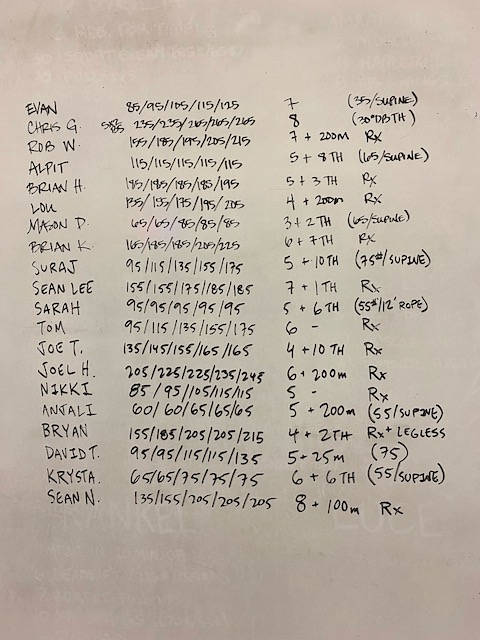 EVAN 85/95/105/115/125 7 (35/SUPINE)
CHRIS G. 235/235/265/265/265 8 (30# DB TH)
ROB W. 155/185/195/205/215 7 + 200m Rx
ALPIT 115/115/115/115/115 5 + 8 TH (65/SUPINE)
BRIAN H. 185/185/185/185/195 5 + 3 TH Rx
LOU 135/155/175/195/205 4 + 200m Rx
MASON D. 65/65/85/85/85 3 + 2 TH (65/SUPINE)
BRIAN K. 165/185/185/205/225 6 + 7 TH Rx
SURAJ 95/115/135/155/175 5 + 10 TH (75#/SUPINE)
SEAN LEE 155/155/175/185/185 7 + 1 TH Rx
SARAH 95/95/95/95/95 5 + 6 TH (55#/12' ROPE)
TOM 95/115/135/155/175 6 - Rx
JOE T. 135/145/155/165/165 4 + 10 TH Rx
JOEL H. 205/225/225/235/245 6 + 200m Rx
NIKKI 85/95/105/115/115 5 - Rx
ANJALI 60/60/65/65/65 5 + 200m (55/SUPINE)
BRYAN 155/185/205/205/215 4 + 2TH Rx+ LEGLESS
DAVID T. 95/95/115/115/135 5 + 25m (75)
KRYSTA. 65/65/75/75/75 6 + 6 TH (55/SUPINE)
SEAN N. 135/155/205/205/205 8 + 100m Rx